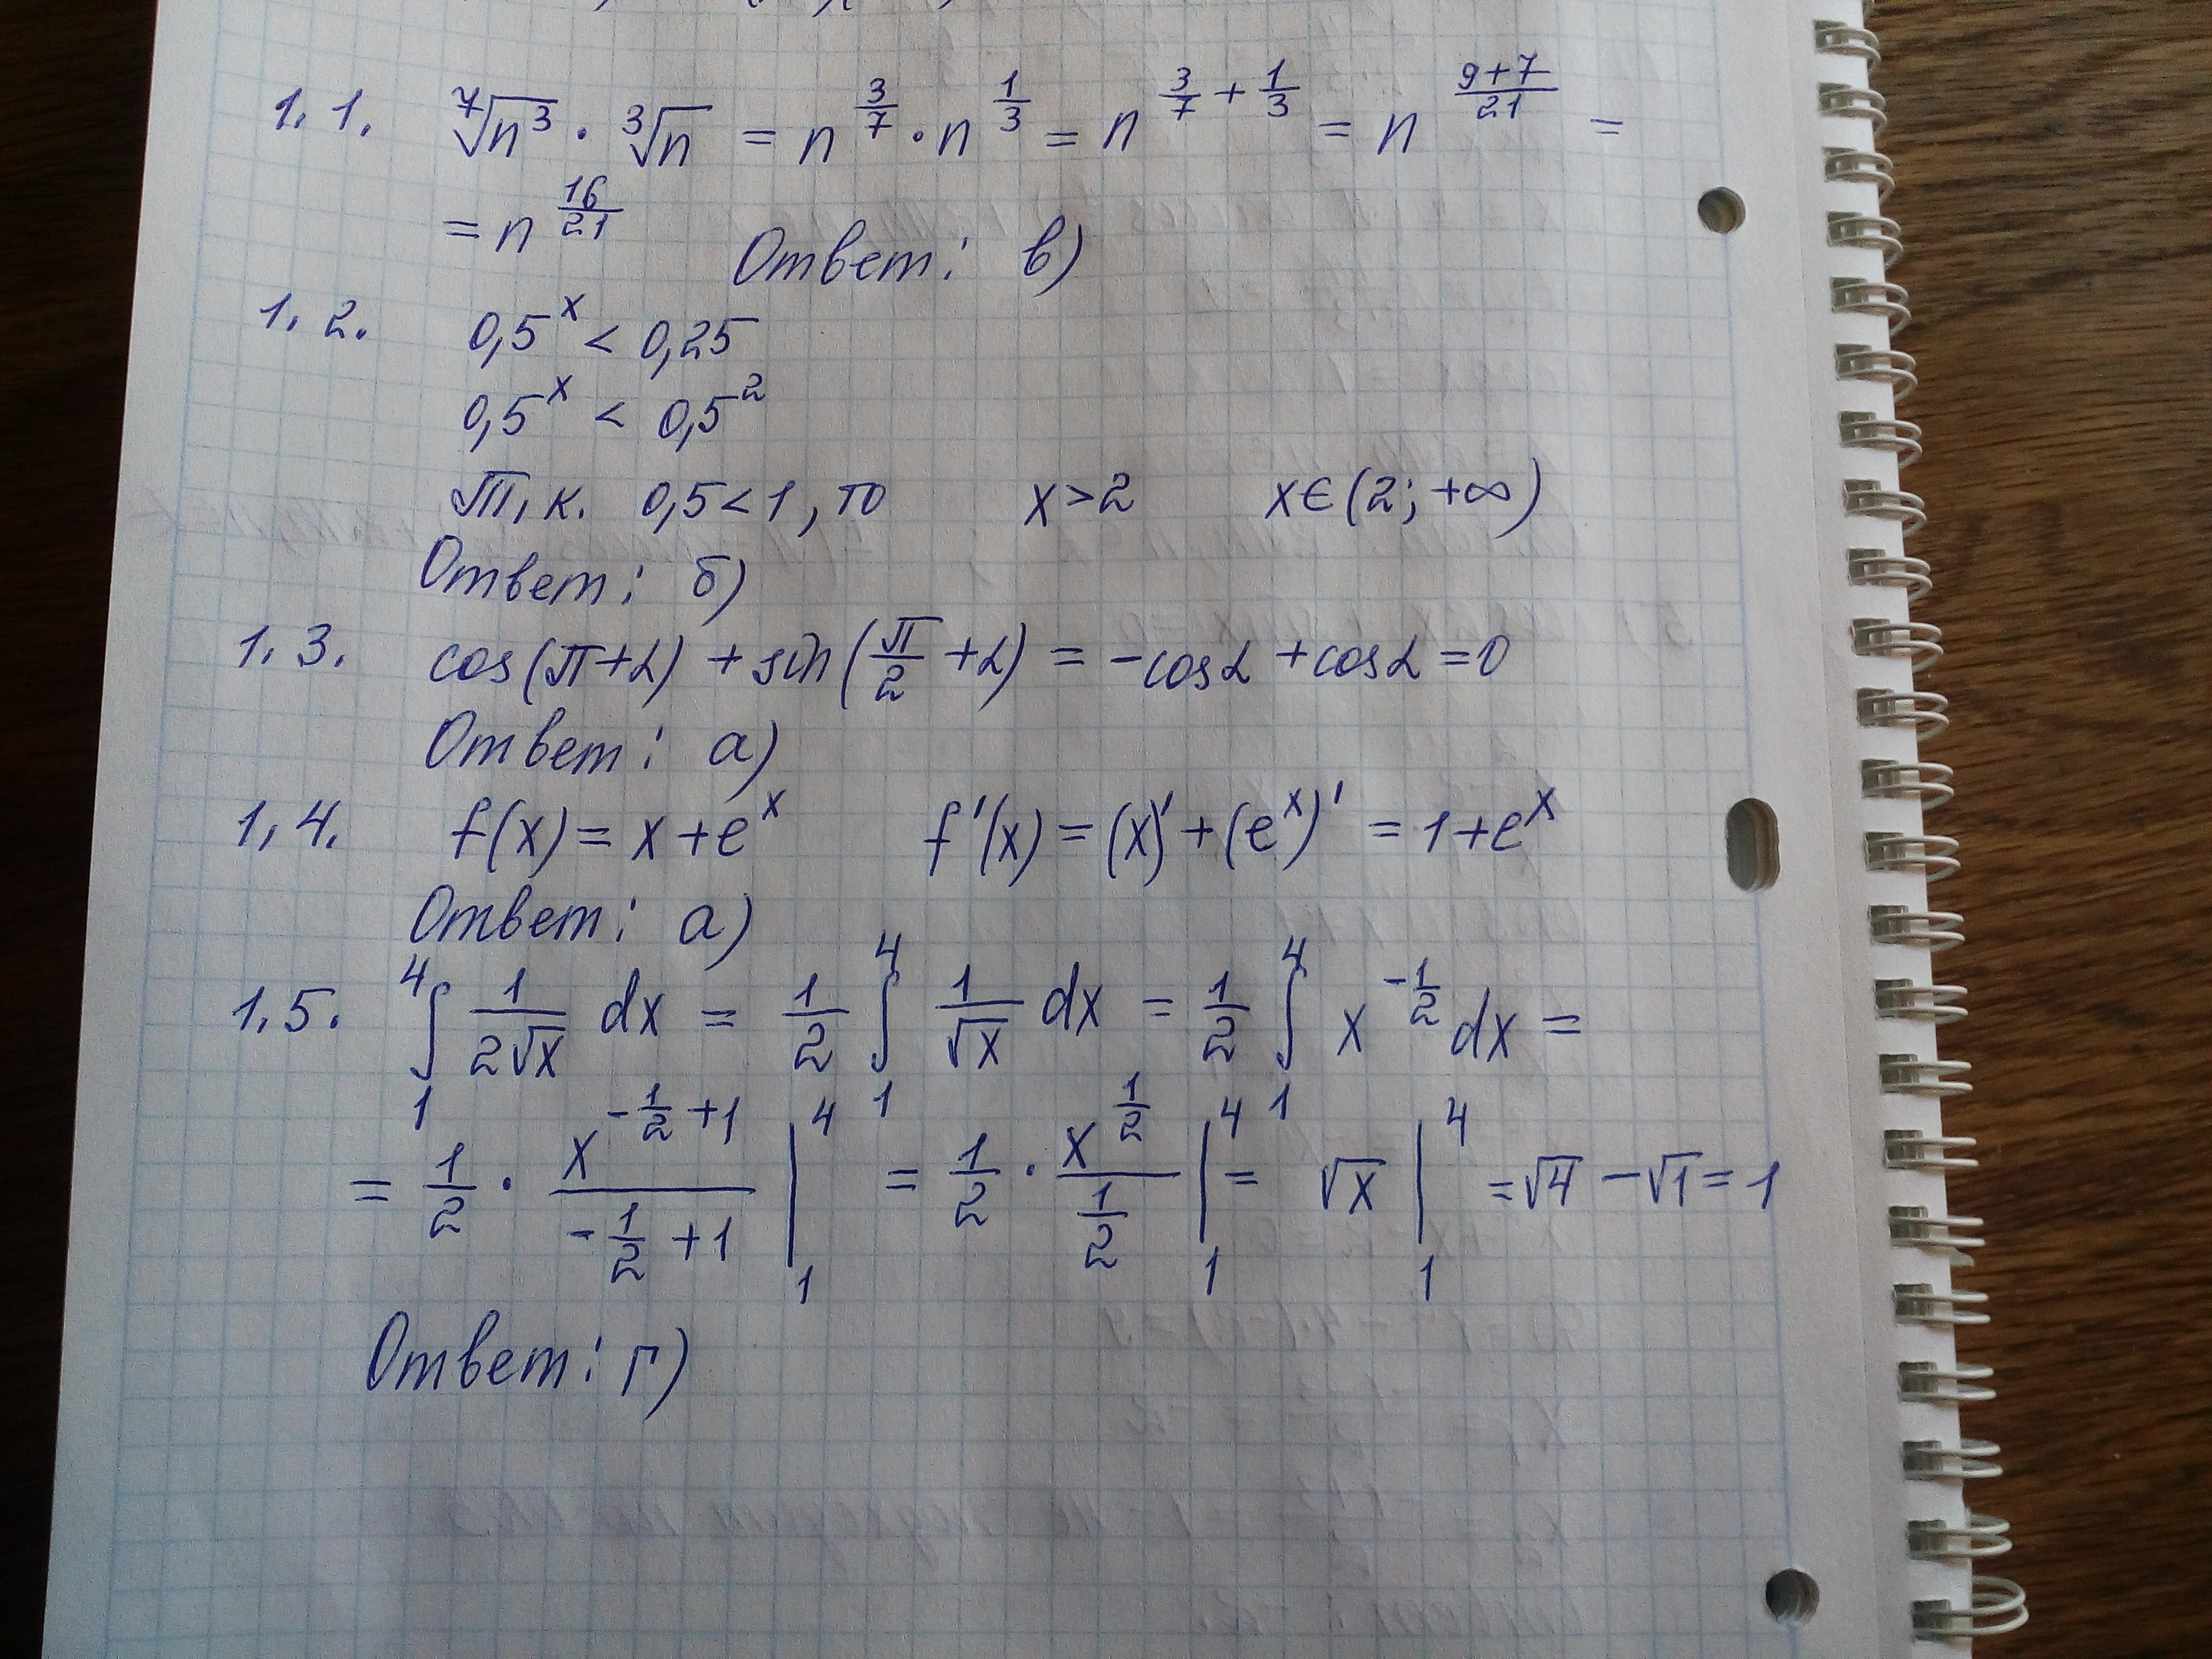 1.1. ⁷√n³ · ³√n = n^(3/7) · n^(1/3) = n^(3/7 + 1/3) = n^((9+7)/21) =
= n^(16/21) Ответ: в)
1.2. 0,5^x < 0,25
0,5^x < 0,5^2
Т.к. 0,5<1, то x>2 x∈(2; +∞)
Ответ: б)
1.3. cos(π+α) + sin(π/2 + α) = -cosα + cosα = 0
Ответ: а)
1.4. f(x) = x + e^x f'(x) = (x)' + (e^x)' = 1 + e^x
Ответ: а)
1.5. ∫₁⁴ 1/(2√x) dx = 1/2 ∫₁⁴ 1/√x dx = 1/2 ∫₁⁴ x^(-1/2) dx =
= 1/2 · x^(-1/2 + 1)/(-1/2 + 1) |₁⁴ = 1/2 · x^(1/2)/(1/2) |₁⁴ = √x |₁⁴ = √4 - √1 = 1
Ответ: г)